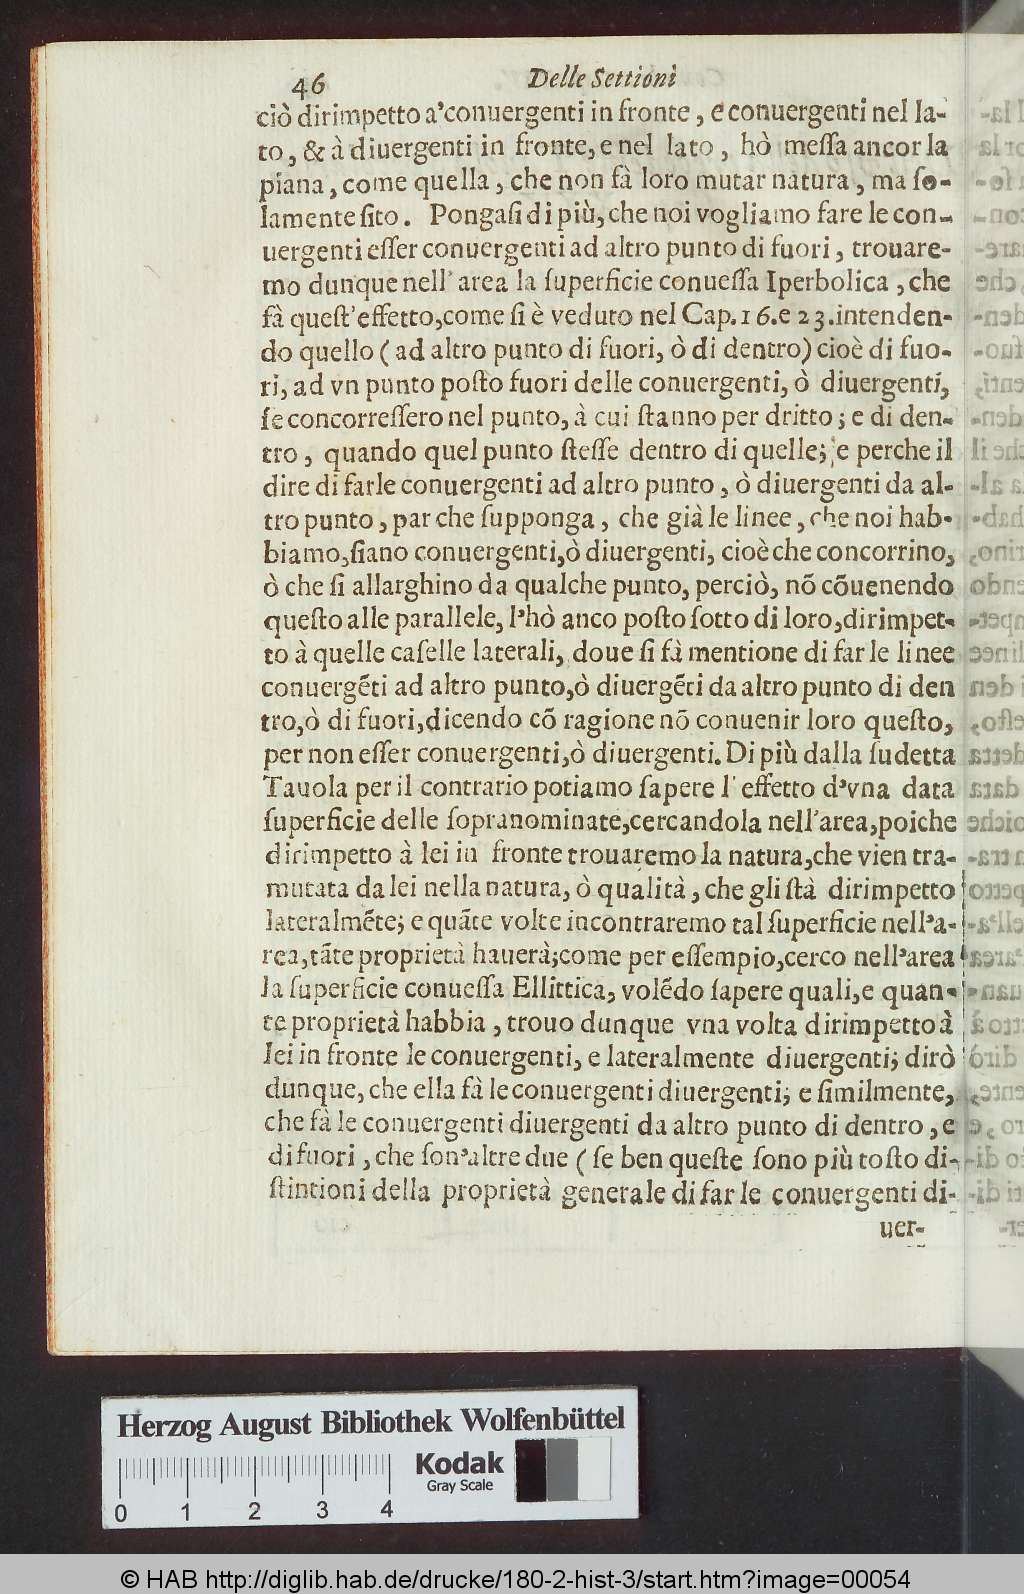 46 Delle Settioni
ciò dirimpetto a'conuergenti in fronte, e conuergenti nel la-
to, & à diuergenti in fronte, e nel lato, hò meſſa ancor la
piana, come quella, che non fà loro mutar natura, ma ſo-
lamente ſito. Pongaſi di più, che noi vogliamo fare le con-
uergenti eſſer conuergenti ad altro punto di fuori, trouare-
mo dunque nell'area la ſuperficie conueſſa Iperbolica, che
fà queſt'effetto, come ſi è veduto nel Cap. 16. e 23. intenden-
do quello (ad altro punto di fuori, ò di dentro) cioè di fuo-
ri, ad vn punto poſto fuori delle conuergenti, ò diuergenti,
ſe concorreſſero nel punto, à cui ſtanno per dritto; e di den-
tro, quando quel punto ſteſſe dentro di quelle; e perche il
dire di farle conuergenti ad altro punto, ò diuergenti da al-
tro punto, par che ſupponga, che già le linee, che noi hab-
biamo, ſiano conuergenti, ò diuergenti, cioè che concorrino,
ò che ſi allarghino da qualche punto, perciò, nõ cõuenendo
queſto alle parallele, l'hò anco poſto ſotto di loro, dirimpet-
to à quelle caſelle laterali, doue ſi fà mentione di far le linee
conuergẽti ad altro punto, ò diuergẽti da altro punto di den
tro, ò di fuori, dicendo cõ ragione nõ conuenir loro queſto,
per non eſſer conuergenti, ò diuergenti. Di più dalla ſudetta
Tauola per il contrario potiamo ſapere l'effetto d'vna data
ſuperficie delle ſopranominate, cercandola nell'area, poiche
dirimpetto à lei in fronte trouaremo la natura, che vien tra-
mutata da lei nella natura, ò qualità, che gli ſtà dirimpetto
lateralmẽte; e quãte volte incontraremo tal ſuperficie nell'a-
rea, tãte proprietà hauerà; come per eſſempio, cerco nell'area
la ſuperficie conueſſa Ellittica, volẽdo ſapere quali, e quan-
te proprietà habbia, trouo dunque vna volta dirimpetto à
lei in fronte le conuergenti, e lateralmente diuergenti; dirò
dunque, che ella fà le conuergenti diuergenti; e ſimilmente,
che fà le conuergenti diuergenti da altro punto di dentro, e
di fuori, che ſon'altre due (ſe ben queſte ſono più toſto di-
ſtintioni della proprietà generale di far le conuergenti di-
uer-
Herzog August Bibliothek Wolfenbüttel
Kodak
Gray Scale
0 1 2 3 4
© HAB http://diglib.hab.de/drucke/180-2-hist-3/start.htm?image=00054